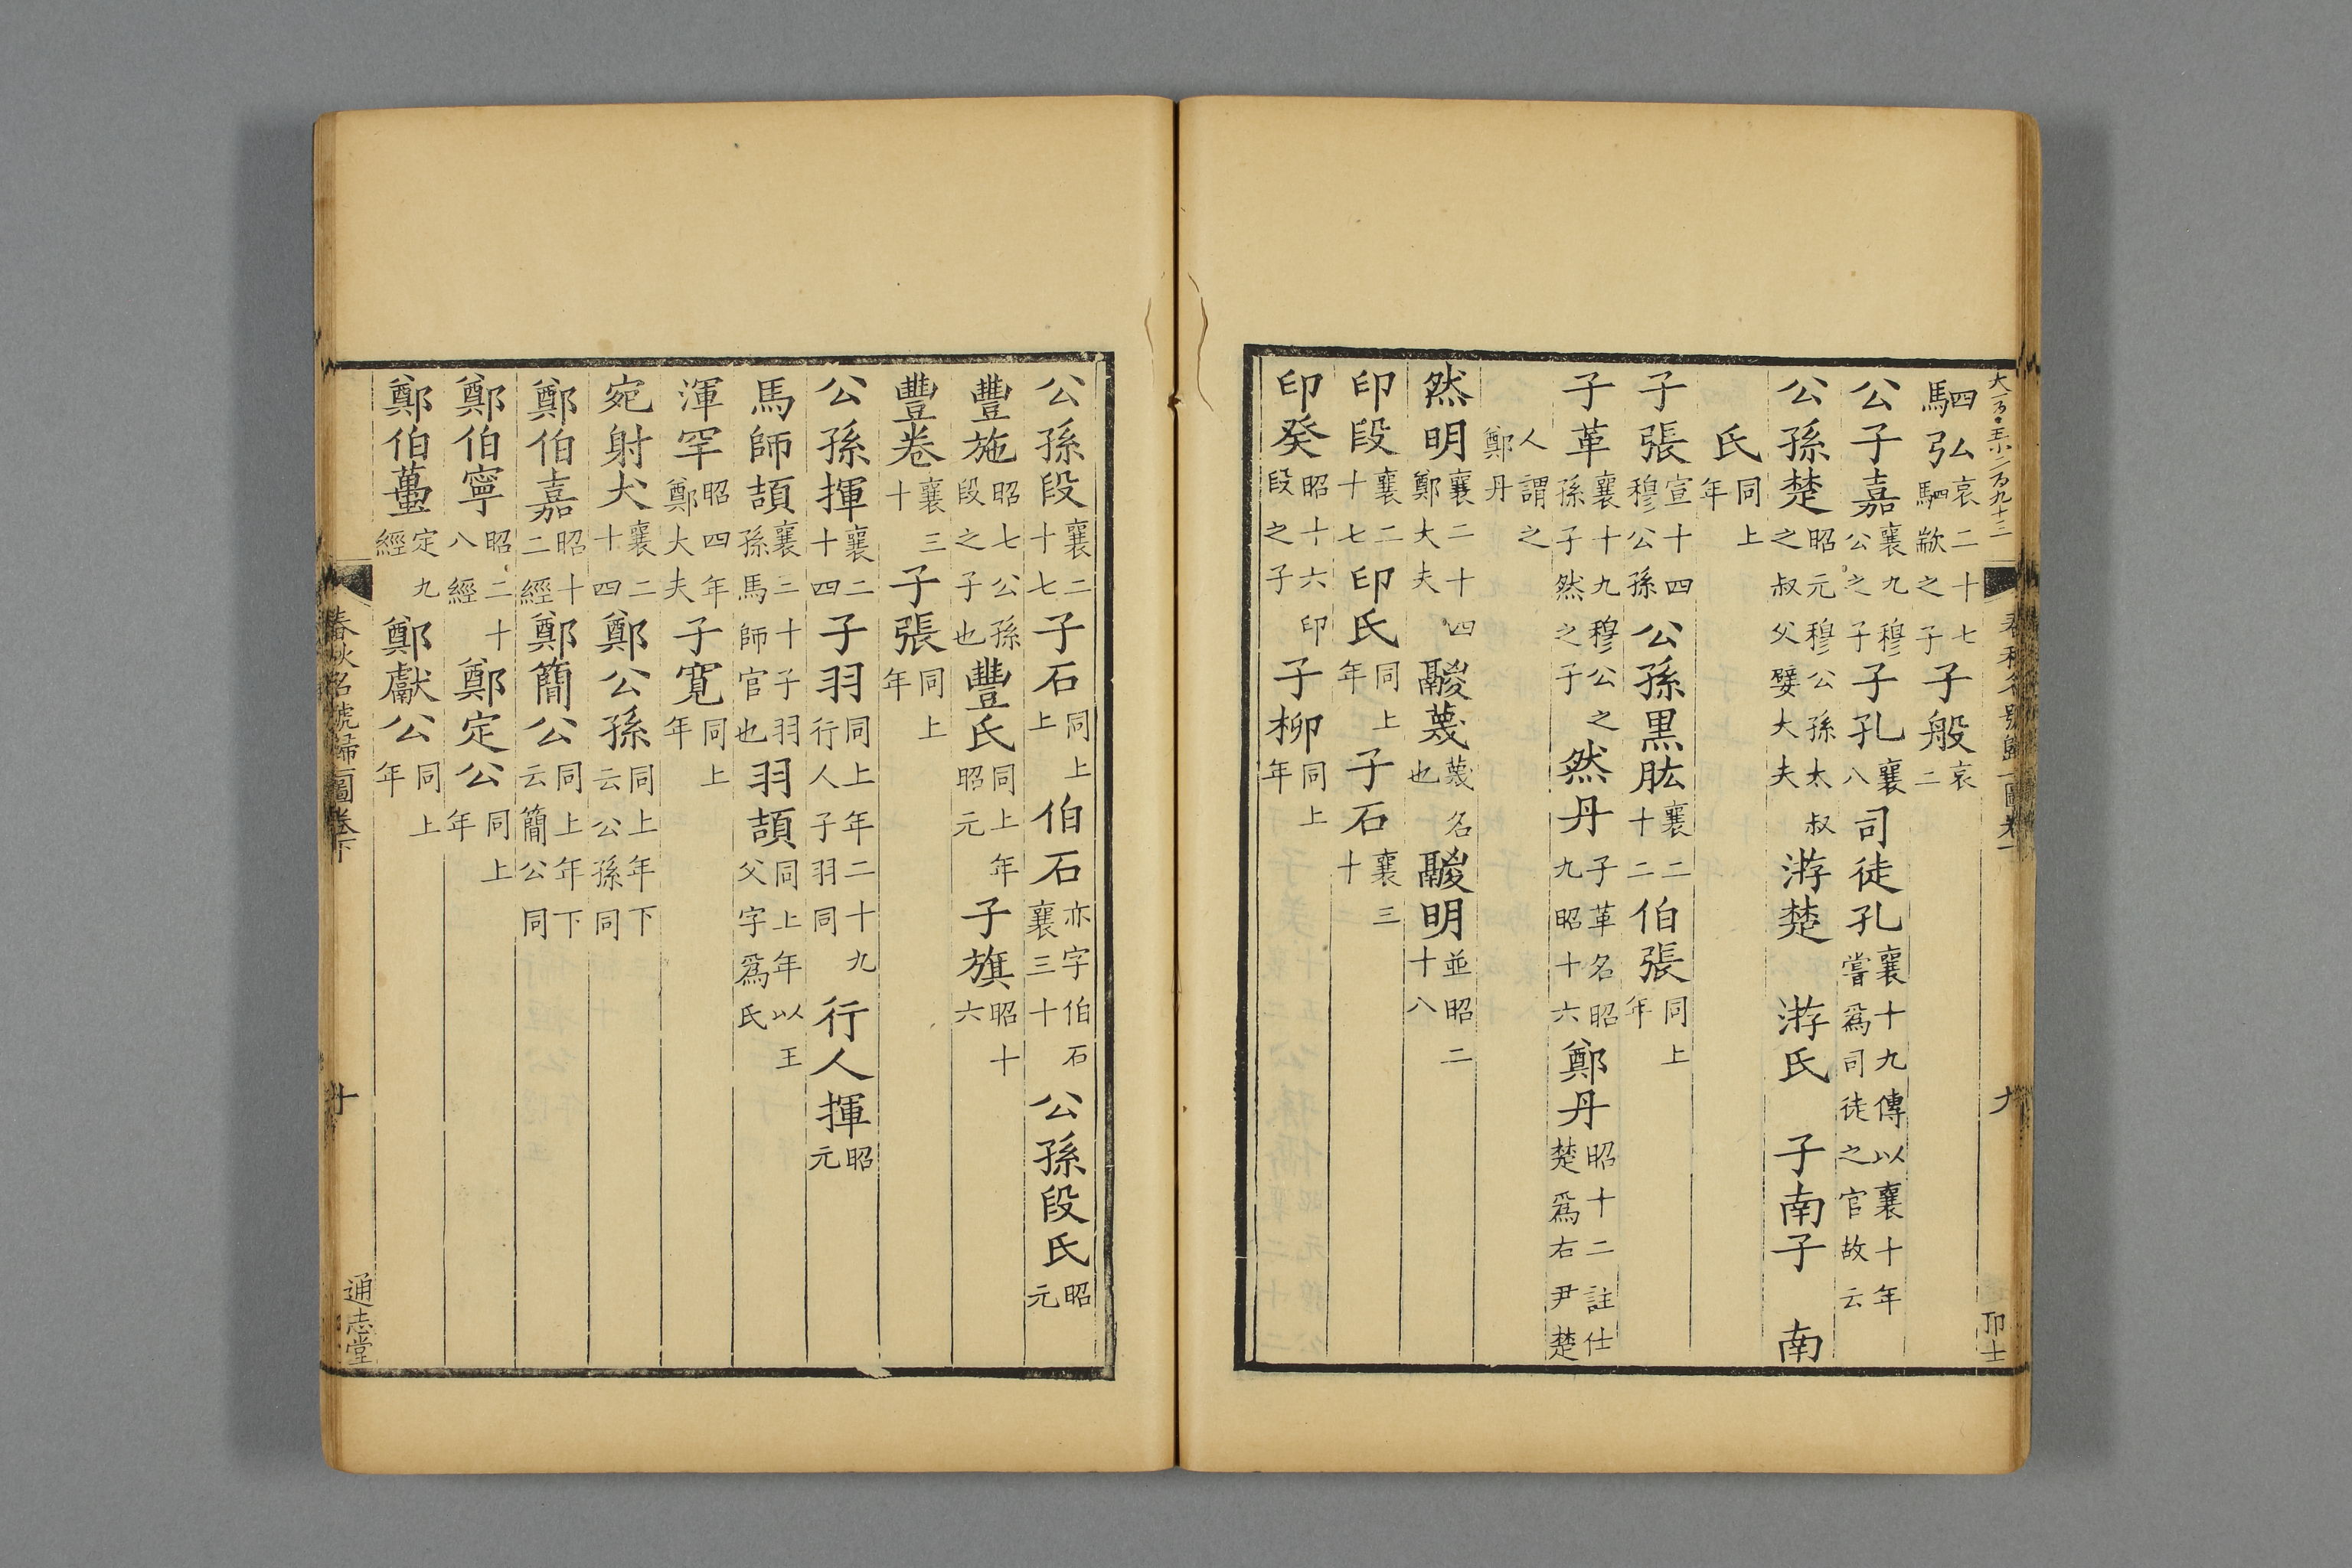 駟弘哀二十七駟歂之子子般哀二
公子嘉襄九穆公之子子孔襄八司徒孔襄十九傳以襄十年嘗爲司徒之官故云
公孫楚昭元穆公孫太叔之叔父嬖大夫游楚 游氏 子南子 南
氏同上年
子張宣十四穆公孫公孫黒肱襄二十二伯張同上年
子革襄十九穆公之孫子然之子然丹子革名昭九昭十六鄭丹昭十二註仕楚爲右尹楚
人謂之鄭丹
然明襄二十四鄭大夫鬷蔑蔑名也鬷明並昭二十八
印段襄二十七印氏同上年子石襄三十
印癸昭十六印段之子子柳同上年
公孫段襄二十七子石同上伯石亦字伯石襄三十公孫段氏昭元
豐施昭七公孫段之子也豐氏同上年昭元子旗昭十六
豐卷襄三十子張同上年
公孫揮襄二十四子羽同上年二十九行人子羽同行人揮昭元
馬師頡襄三十子羽孫馬師官也羽頡同上年以王父字爲氏
渾罕昭四年鄭大夫子寛同上年
宛射犬襄二十四鄭公孫同上年下云公孫同
鄭伯嘉昭十二經鄭簡公同上年下云簡公同
鄭伯寧昭二十八經鄭定公同上年
鄭伯蠆定九經鄭獻公同上年
春秋名號歸一圖卷下
十
通志堂